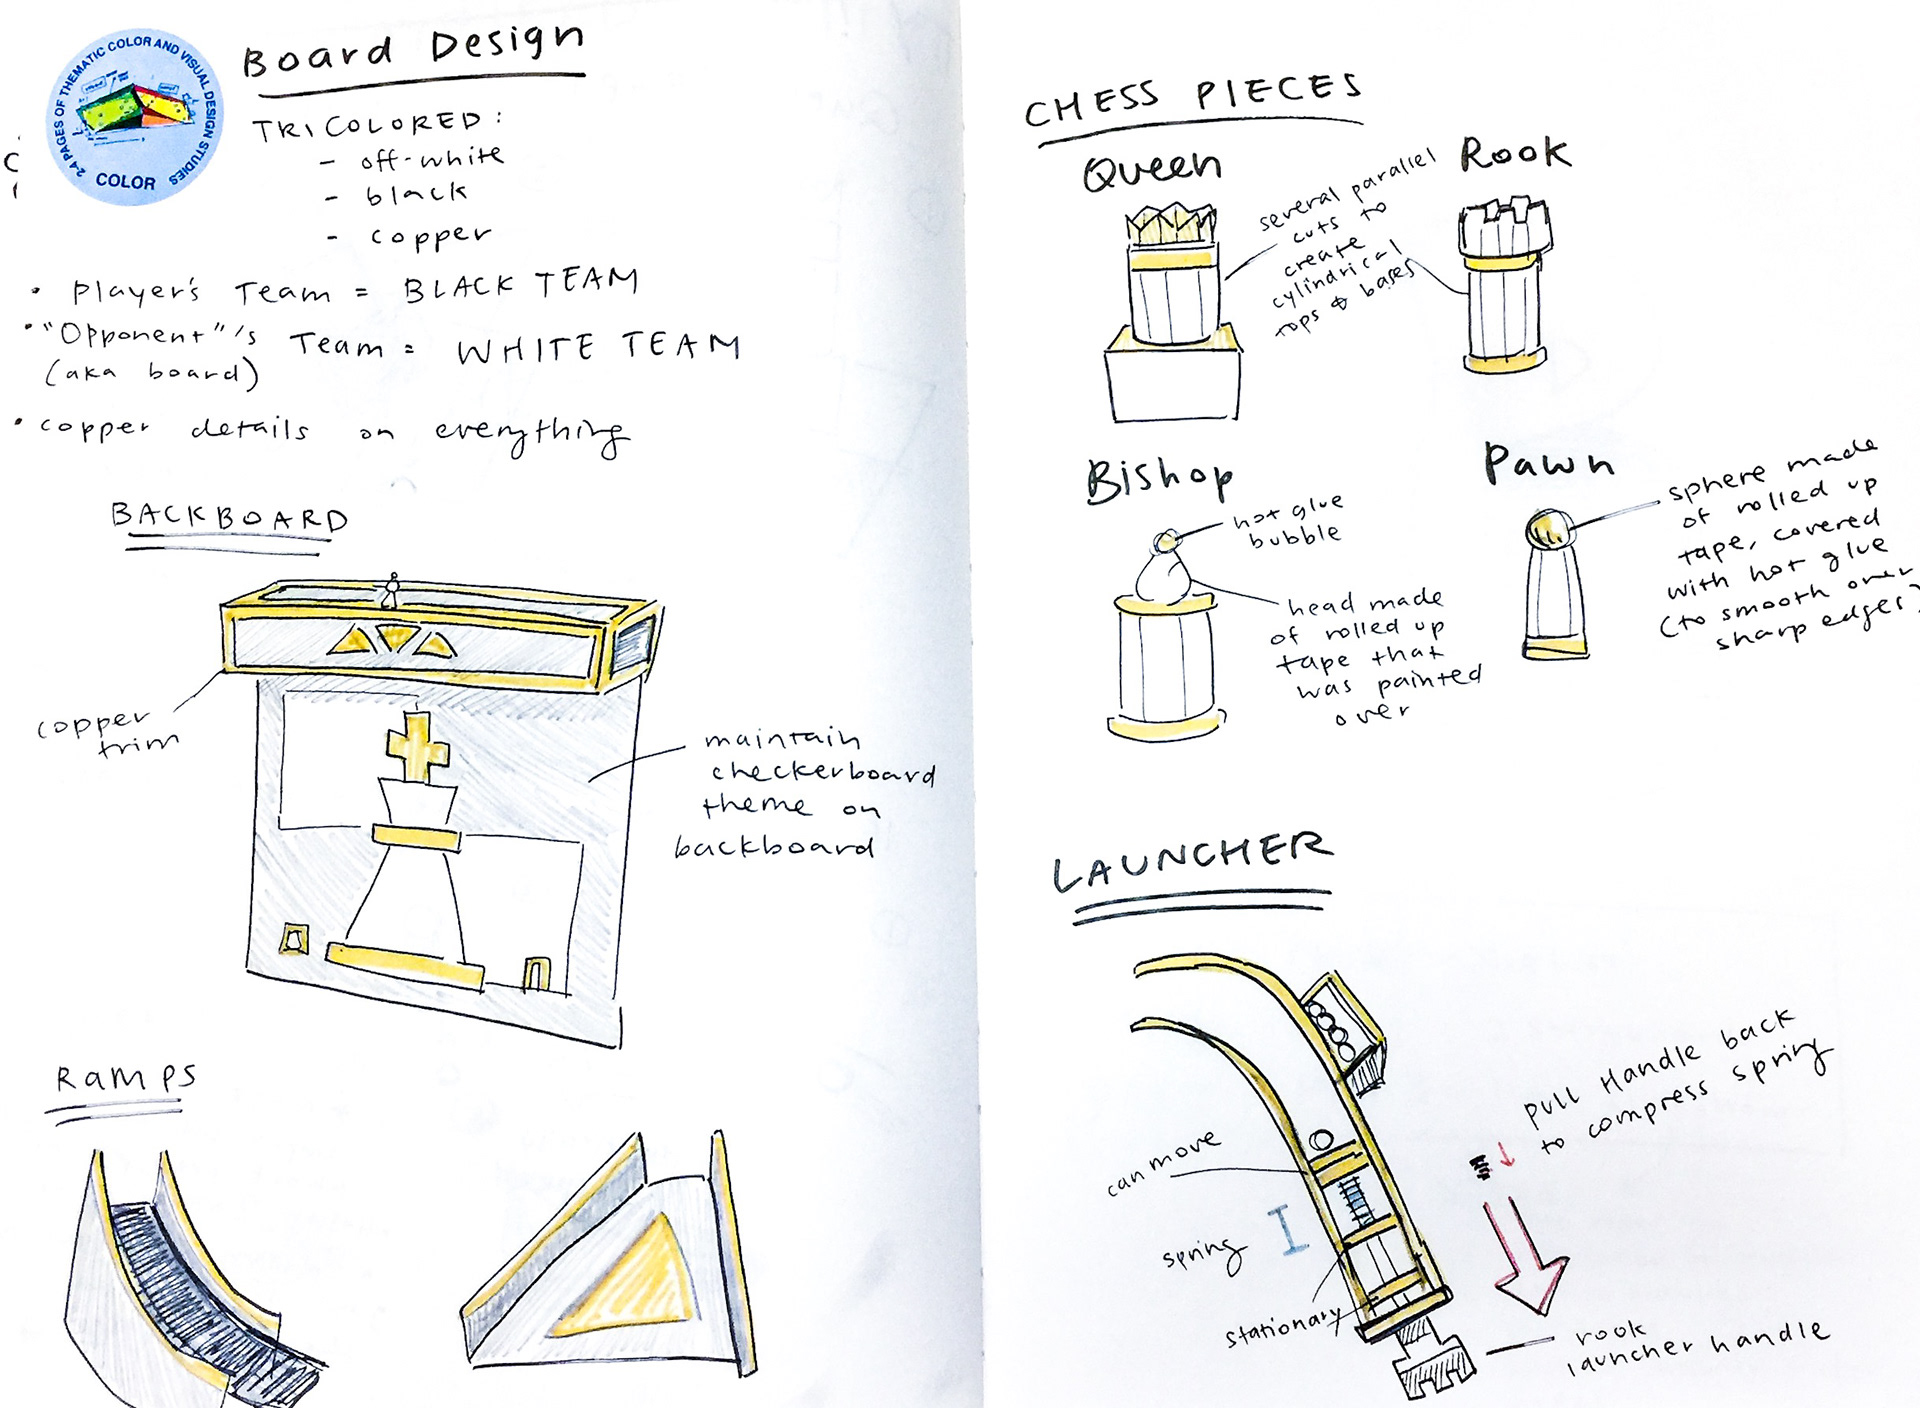 24 PAGES OF THEMATIC COLOR AND VISUAL DESIGN STUDIES
COLOR
Board Design
TRICOLORED:
- off-white
- black
- copper
• Player's Team = BLACK TEAM
• "Opponent"'s Team = WHITE TEAM
(aka board)
• copper details on everything
BACKBOARD
copper
trim
maintain
checkerboard
theme on
backboard
RAMPS
CHESS PIECES
Queen
several parallel
cuts to
create
cylindrical
tops & bases
Rook
Bishop
hot glue
bubble
head made
of rolled up
tape that
was painted
over
Pawn
sphere made
of rolled up
tape, covered
with hot glue
(to smooth over
sharp edges)
LAUNCHER
Pull Handle back
to compress spring
can move
spring
stationary
rook
launcher handle